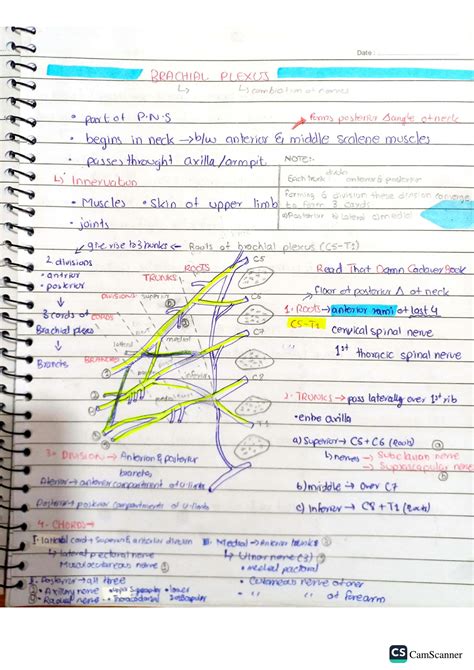 Date:
BRACHIAL PLEXUS
↳ combination of nerves
• part of P.N.S
forms posterior Δangle of neck
• begins in neck → b/w anterior & middle scalene muscles
• passes throught axilla/armpit.
NOTE:-
divides
Each trunk anterior & posterior
forming 6 division these division converge
to form 3 cords
a) Posterior b) lateral c) medial
↳ Innervation
• Muscles • Skin of upper limb
• joints
give rise to 3 trunks ← Roots of brachial plexus (C5-T1)
2 divisions
• antrior
• posterior
↓
3 cords of
Brachial plexes
↓
Branchs
ROOTS
TRUNKS
Divisions
CORDS
BRANCHES
superior
lateral
medial
inferior
C5
C7
C8
T1
Read That Damn Cadaver Book
floor of posterior Δ of neck
1. Roots → anterior rami of last 4
C5-T1 cervical spinal nerve
1st thoracic spinal nerve
2. TRUNKS → pass laterally over 1st rib
• enbe axilla
a) Superior → C5 + C6 (Roots)
b) nerves → Subclavian nerve
→ Suprascapular nerve
b) middle → over C7
c) Inferior → C8 + T1 (Roots)
3. DIVISION → Anterior & posterior
branches
Aterior → anterior compartment of U-limbs
Posterior → posterior compartments of U-limbs
4. CHORDS →
I. lateral cord → Superior & anterior division
↳ lateral pectoral nerve
Musculocutaneous nerve
II. Posterior → all three
• Axillary nerve
• Radial nerve
• Thoracodorsal
• lower
Subscapular
III. Medial → Anterior trunks
↳ Ulnar nerve (3)
• medial pactoral
• Cutaneous nerve of arm
• " " of forearm
CS CamScanner